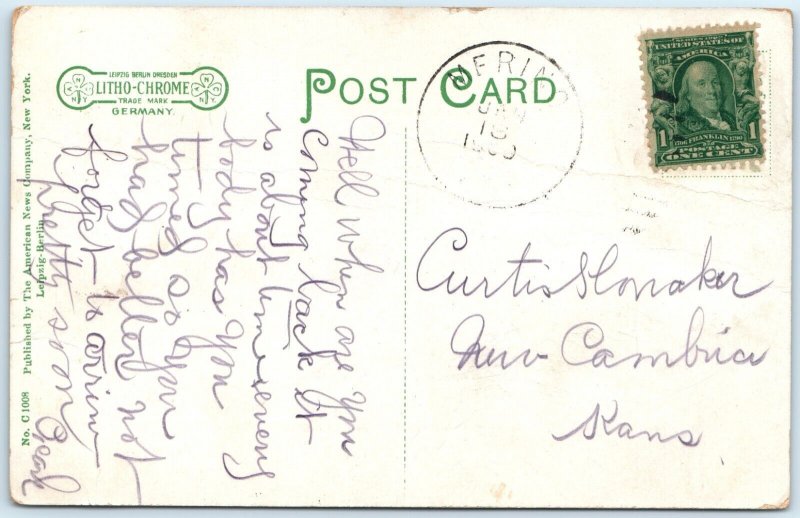 LEIPZIG BERLIN DRESDEN
LITHO-CHROME
TRADE MARK
GERMANY.
POST CARD
JAN
SERIES 1902
UNITED STATES OF
AMERICA
1706 FRANKLIN 1790
1 POSTAGE 1
ONE CENT
Well when are You
Coming back It
is about time every
body has You
timed so You
had better not
forget to arrive
pretty soon
Pearl
Curtis Slonaker
New Cambria
Kans
No. C 1008 Published by The American News Company, New York.
Leipzig-Berlin